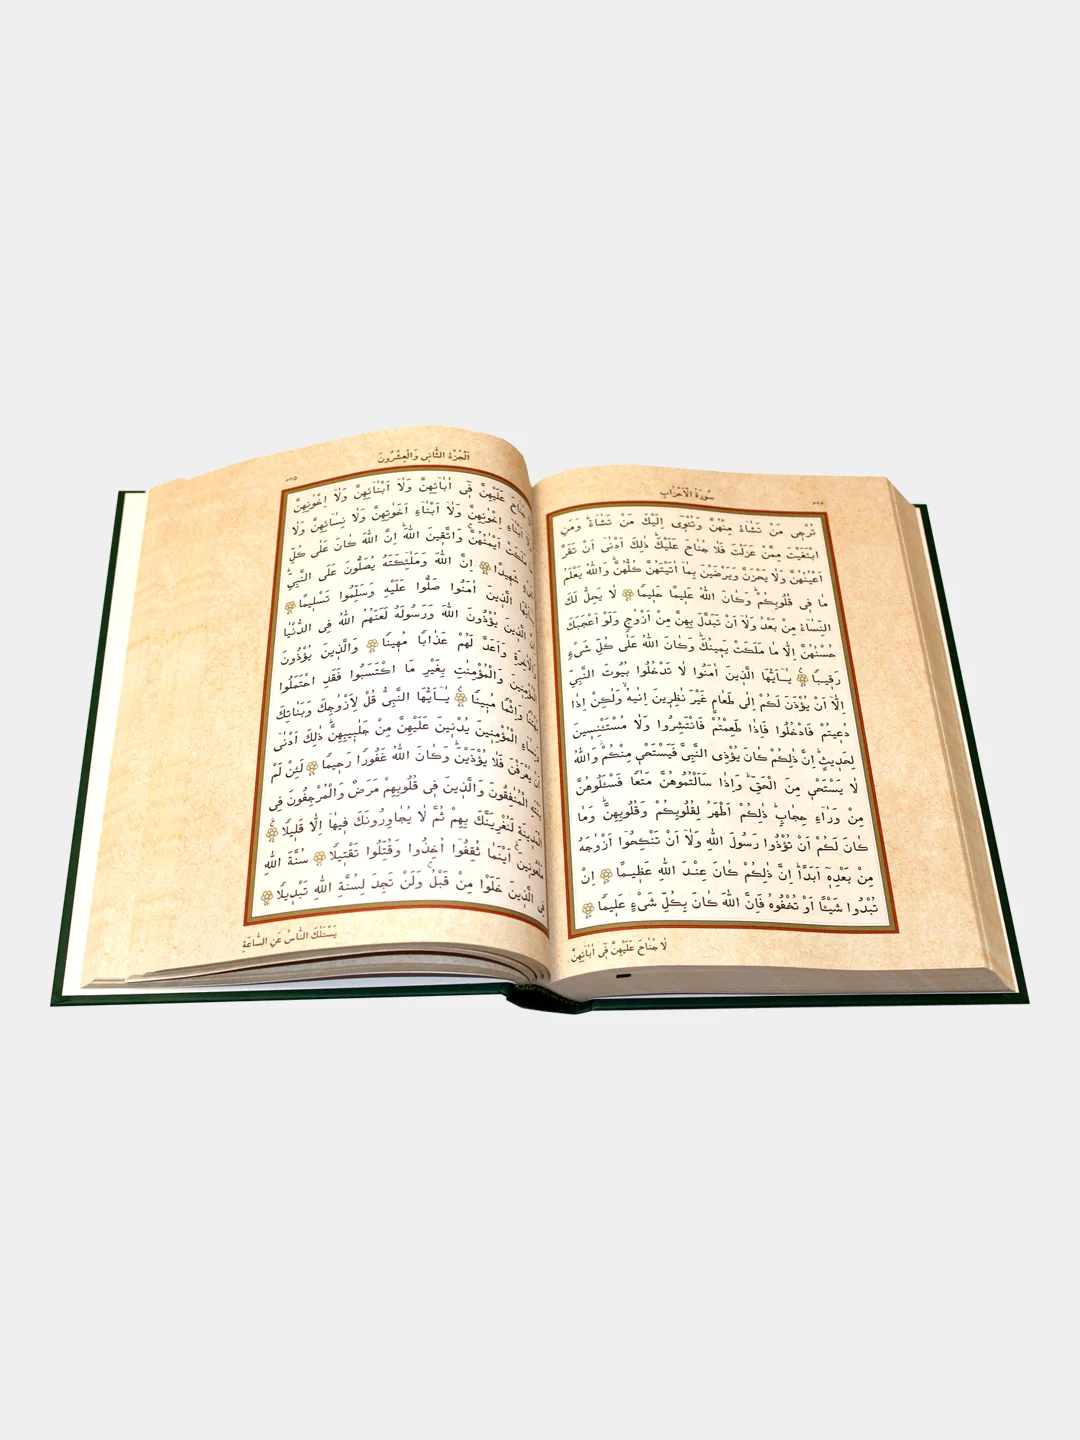 سُورَةُ الْاَحْزَابِ
٤٢٤
تُرْجِى مَنْ تَشَاءُ مِنْهُنَّ وَتُـْٔوِى اِلَيْكَ مَنْ تَشَاءُ وَمَنِ
ابْتَغَيْتَ مِمَّنْ عَزَلْتَ فَلَا جُنَاحَ عَلَيْكَ ذٰلِكَ اَدْنٰى اَنْ تَقَرَّ
اَعْيُنُهُنَّ وَلَا يَحْزَنَّ وَيَرْضَيْنَ بِمَا اٰتَيْتَهُنَّ كُلُّهُنَّ وَاللّٰهُ يَعْلَمُ
مَا فِى قُلُوبِكُمْ وَكَانَ اللّٰهُ عَلِيمًا حَلِيمًا لَا يَحِلُّ لَكَ
النِّسَاءُ مِنْ بَعْدُ وَلَا اَنْ تَبَدَّلَ بِهِنَّ مِنْ اَزْوَاجٍ وَلَوْ اَعْجَبَكَ
حُسْنُهُنَّ اِلَّا مَا مَلَكَتْ يَمِينُكَ وَكَانَ اللّٰهُ عَلٰى كُلِّ شَىْءٍ
رَقِيبًا يَا اَيُّهَا الَّذِينَ اٰمَنُوا لَا تَدْخُلُوا بُيُوتَ النَّبِىِّ
اِلَّا اَنْ يُؤْذَنَ لَكُمْ اِلٰى طَعَامٍ غَيْرَ نَاظِرِينَ اِنٰيهُ وَلٰكِنْ اِذَا
دُعِيتُمْ فَادْخُلُوا فَاِذَا طَعِمْتُمْ فَانْتَشِرُوا وَلَا مُسْتَاْنِسِينَ
لِحَدِيثٍ اِنَّ ذٰلِكُمْ كَانَ يُؤْذِى النَّبِىَّ فَيَسْتَحْيِ مِنْكُمْ وَاللّٰهُ
لَا يَسْتَحْيِ مِنَ الْحَقِّ وَاِذَا سَاَلْتُمُوهُنَّ مَتَاعًا فَسْـَٔلُوهُنَّ
مِنْ وَرَاءِ حِجَابٍ ذٰلِكُمْ اَطْهَرُ لِقُلُوبِكُمْ وَقُلُوبِهِنَّ وَمَا
كَانَ لَكُمْ اَنْ تُؤْذُوا رَسُولَ اللّٰهِ وَلَا اَنْ تَنْكِحُوا اَزْوَاجَهُ
مِنْ بَعْدِهِ اَبَدًا اِنَّ ذٰلِكُمْ كَانَ عِنْدَ اللّٰهِ عَظِيمًا اِنْ
تُبْدُوا شَيْئًا اَوْ تُخْفُوهُ فَاِنَّ اللّٰهَ كَانَ بِكُلِّ شَىْءٍ عَلِيمًا
لَا جُنَاحَ عَلَيْهِنَّ فِى اٰبَائِهِنَّ
اَلْجُزْءُ الثَّانِى وَالْعِشْرُونَ
٤٢٥
جُنَاحَ عَلَيْهِنَّ فِى اٰبَائِهِنَّ وَلَا اَبْنَائِهِنَّ وَلَا اِخْوَانِهِنَّ
اَبْنَاءِ اِخْوَانِهِنَّ وَلَا اَبْنَاءِ اَخَوَاتِهِنَّ وَلَا نِسَائِهِنَّ وَلَا
مَلَكَتْ اَيْمَانُهُنَّ وَاتَّقِينَ اللّٰهَ اِنَّ اللّٰهَ كَانَ عَلٰى كُلِّ
شَهِيدًا اِنَّ اللّٰهَ وَمَلٰئِكَتَهُ يُصَلُّونَ عَلَى النَّبِىِّ
الَّذِينَ اٰمَنُوا صَلُّوا عَلَيْهِ وَسَلِّمُوا تَسْلِيمًا
الَّذِينَ يُؤْذُونَ اللّٰهَ وَرَسُولَهُ لَعَنَهُمُ اللّٰهُ فِى الدُّنْيَا
وَالْاٰخِرَةِ وَاَعَدَّ لَهُمْ عَذَابًا مُهِينًا وَالَّذِينَ يُؤْذُونَ
الْمُؤْمِنِينَ وَالْمُؤْمِنَاتِ بِغَيْرِ مَا اكْتَسَبُوا فَقَدِ احْتَمَلُوا
بُهْتَانًا وَاِثْمًا مُبِينًا يَا اَيُّهَا النَّبِىُّ قُلْ لِاَزْوَاجِكَ وَبَنَاتِكَ
وَنِسَاءِ الْمُؤْمِنِينَ يُدْنِينَ عَلَيْهِنَّ مِنْ جَلَابِيبِهِنَّ ذٰلِكَ اَدْنٰى
اَنْ يُعْرَفْنَ فَلَا يُؤْذَيْنَ وَكَانَ اللّٰهُ غَفُورًا رَحِيمًا لَئِنْ لَمْ
يَنْتَهِ الْمُنَافِقُونَ وَالَّذِينَ فِى قُلُوبِهِمْ مَرَضٌ وَالْمُرْجِفُونَ فِى
الْمَدِينَةِ لَنُغْرِيَنَّكَ بِهِمْ ثُمَّ لَا يُجَاوِرُونَكَ فِيهَا اِلَّا قَلِيلًا
مَلْعُونِينَ اَيْنَمَا ثُقِفُوا اُخِذُوا وَقُتِّلُوا تَقْتِيلًا سُنَّةَ اللّٰهِ
فِى الَّذِينَ خَلَوْا مِنْ قَبْلُ وَلَنْ تَجِدَ لِسُنَّةِ اللّٰهِ تَبْدِيلًا
يَسْـَٔلُكَ النَّاسُ عَنِ السَّاعَةِ